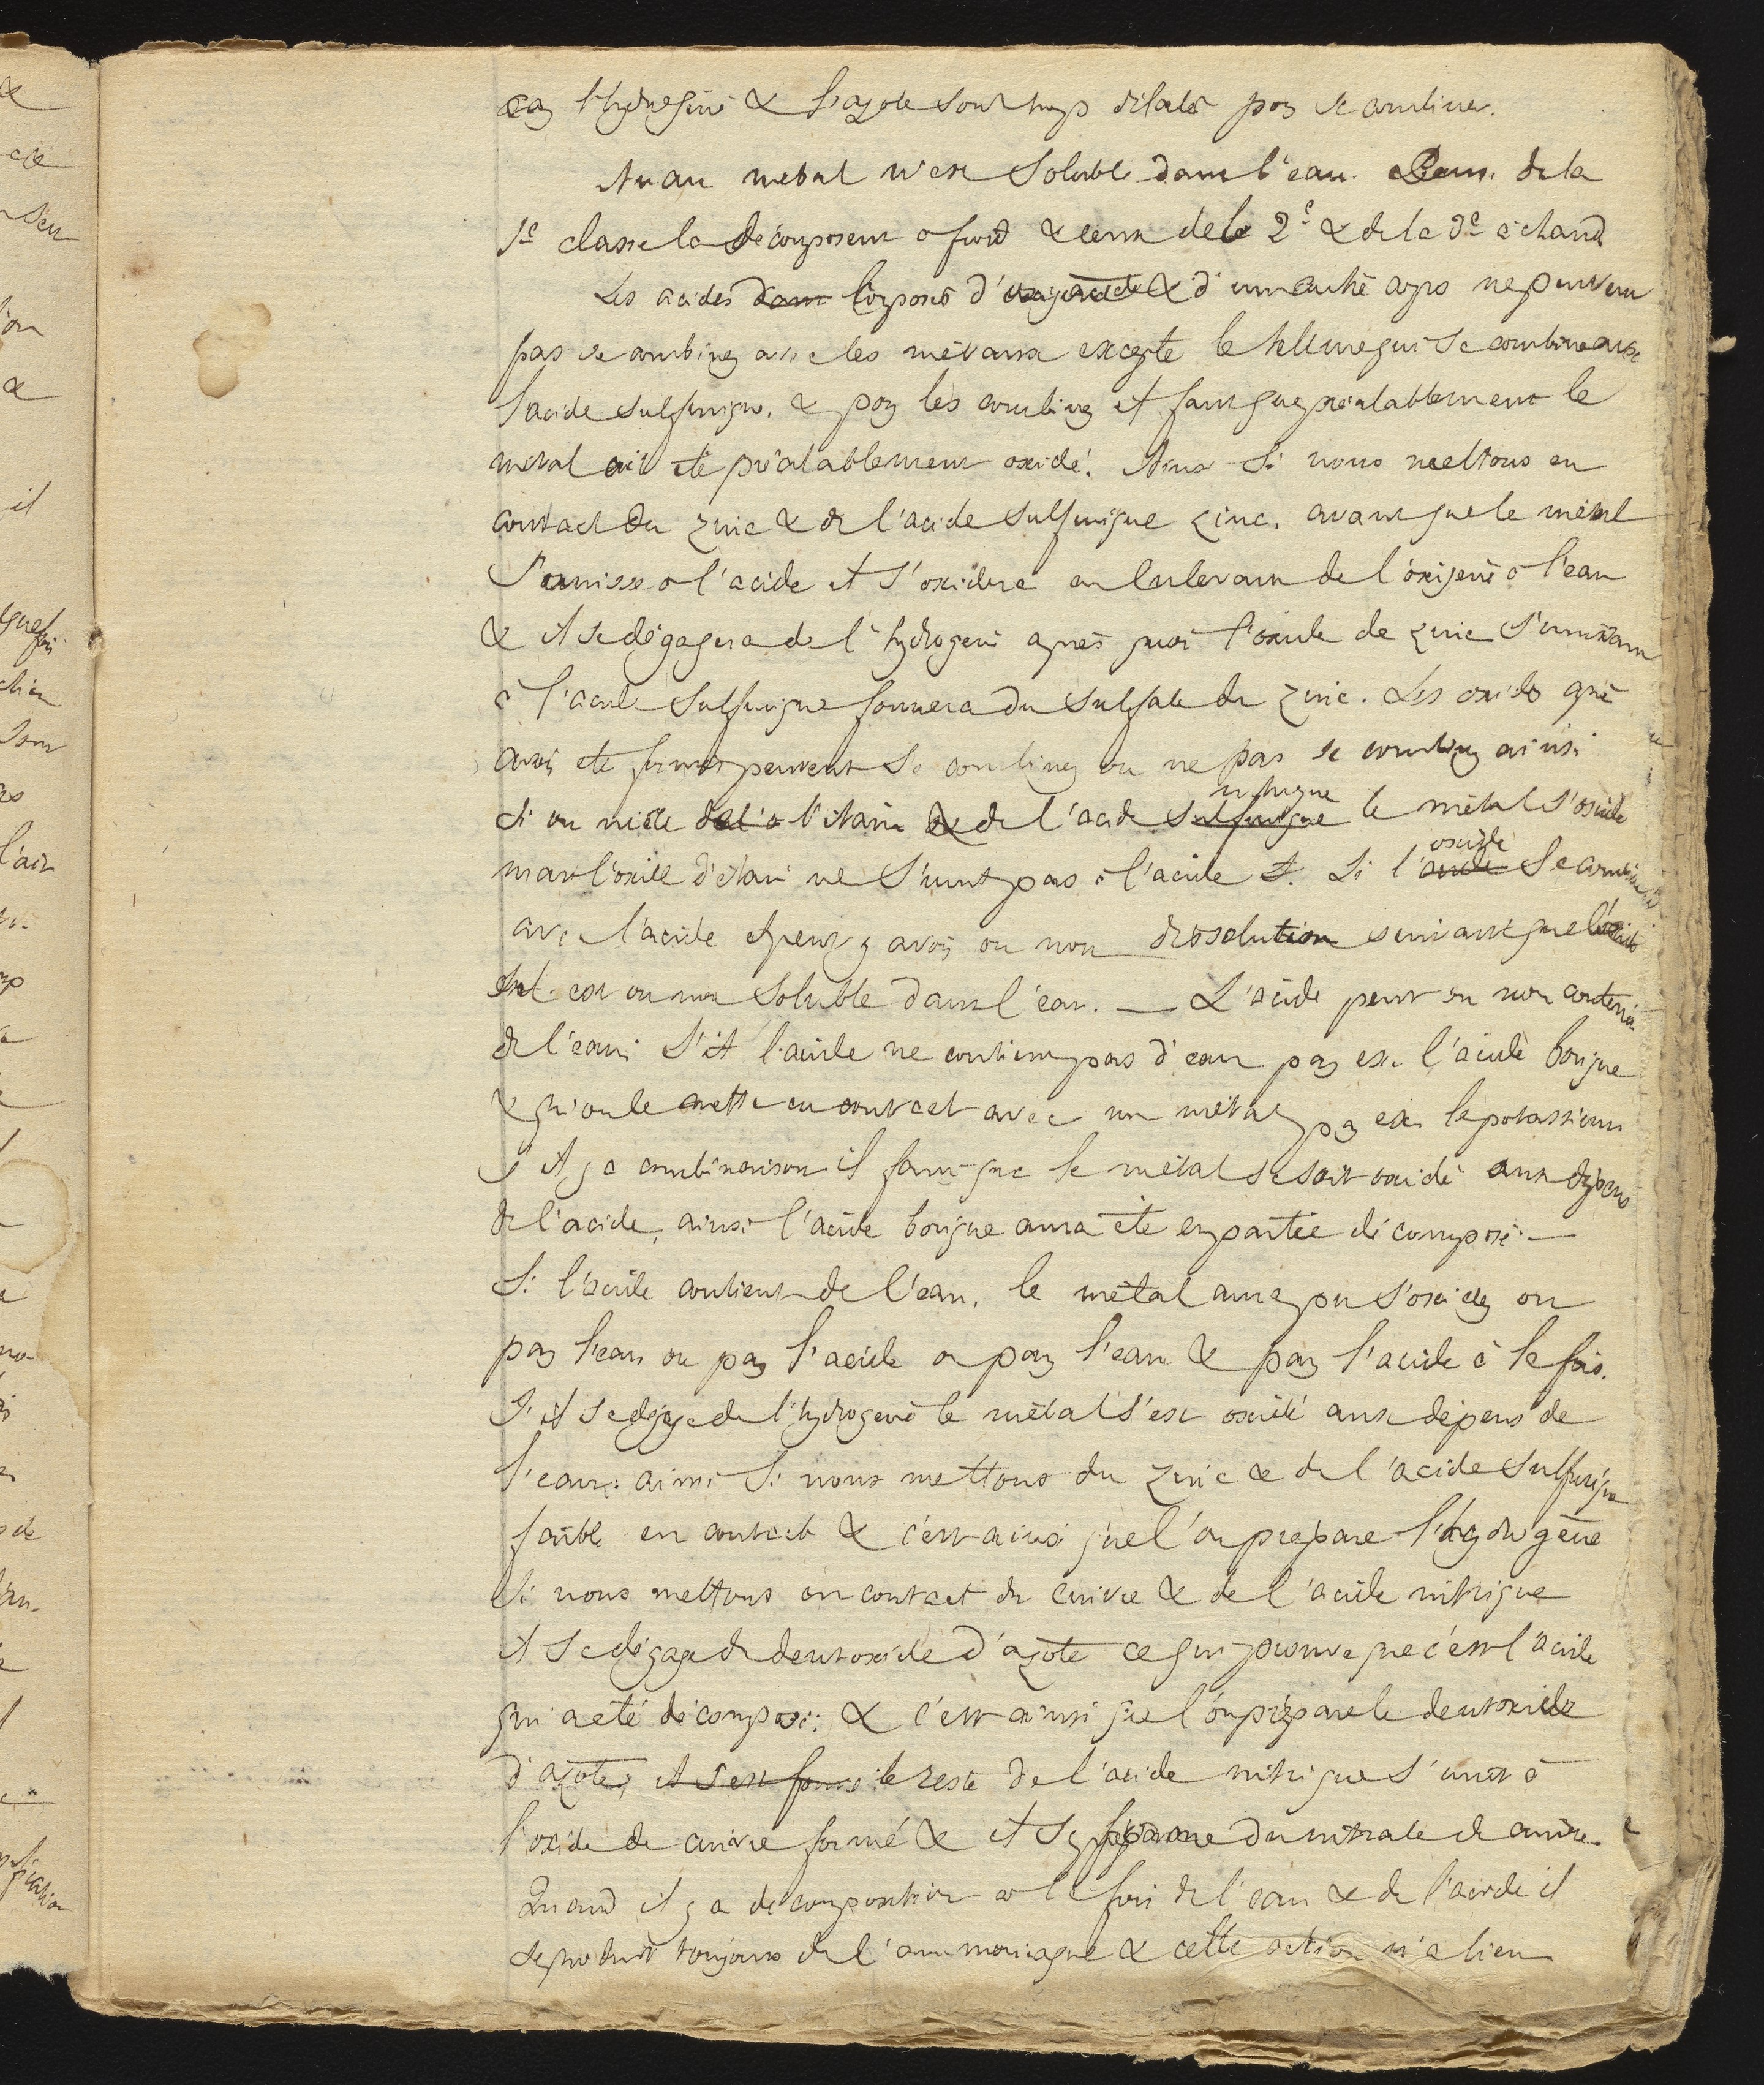 car l'hydrogène & l'azote sont trop dilatés pour se combiner.
Aucun metal n'est soluble dans l'eau. Ceux de la
1e classe la décomposent a froid & ceux de la 2e & de la 3e à chaud
Les acides dans composés d'oxigene & d'un autre corps ne peuvent
pas se combiner avec les métaux excepte le tellure qui se combine avec
l'acide sulfurique. & pour les combiner il faut que préalablement le
métal ait été préalablement oxidé. Ainsi si nous mettons en
contact du zinc & de l'acide sulfurique zinc. avant que le métal
s'unisse à l'acide il s'oxidera en enlevant de l'oxigene à l'eau
& il se dégagera de l'hydrogene après quoi l'oxide de zinc s'unissant
à l'acide sulfurique formera du sulfate de zinc. Les oxides qui
avoir été formés peuvent se combiner ou ne pas se combiner ainsi
si on mêle de l'a l'étain & de l'acide sulfurique nitrique le métal s'oxide
mais l'oxide d'étain ne s'unit pas à l'acide. Si l'acide oxide se combine
avec l'acide il peut y avoir ou non dissolution suivant que l'oxide
sel est ou non soluble dans l'eau. — L'acide peut ou non contenir
de l'eau; s'il l'acide ne contient pas d'eau par ex. l'acide borique
& qu'on le mette en contact avec un métal par ex. le potassium
s'il y a combinaison il faut que le métal se soit oxidé aux dépens
de l'acide, ainsi l'acide borique aura été en partie décomposé. —
Si l'acide contient de l'eau, le métal aura pu s'oxider ou
par l'eau ou par l'acide ou par l'eau & par l'acide à la fois.
S'il se dégage de l'hydrogene le métal s'est oxidé aux dépens de
l'eau: ainsi si nous mettons du zinc & de l'acide sulfurique
faible en contact & c'est ainsi que l'on prépare l'hydrogène
Si nous mettons en contact du cuivre & de l'acide nitrique
il se dégage du deutoxide d'azote ce qui prouve que c'est l'acide
qui a été décomposé: & c'est ainsi que l'on prépare le deutoxide
d'azote; il s'est formé le reste de l'acide nitrique s'unit à
l'oxide de cuivre formé & il se forme du nitrate de cuivre.
Quand il y a décomposition à la fois de l'eau & de l'acide il
se produit toujours de l'ammoniaque & cette action n'a lieu